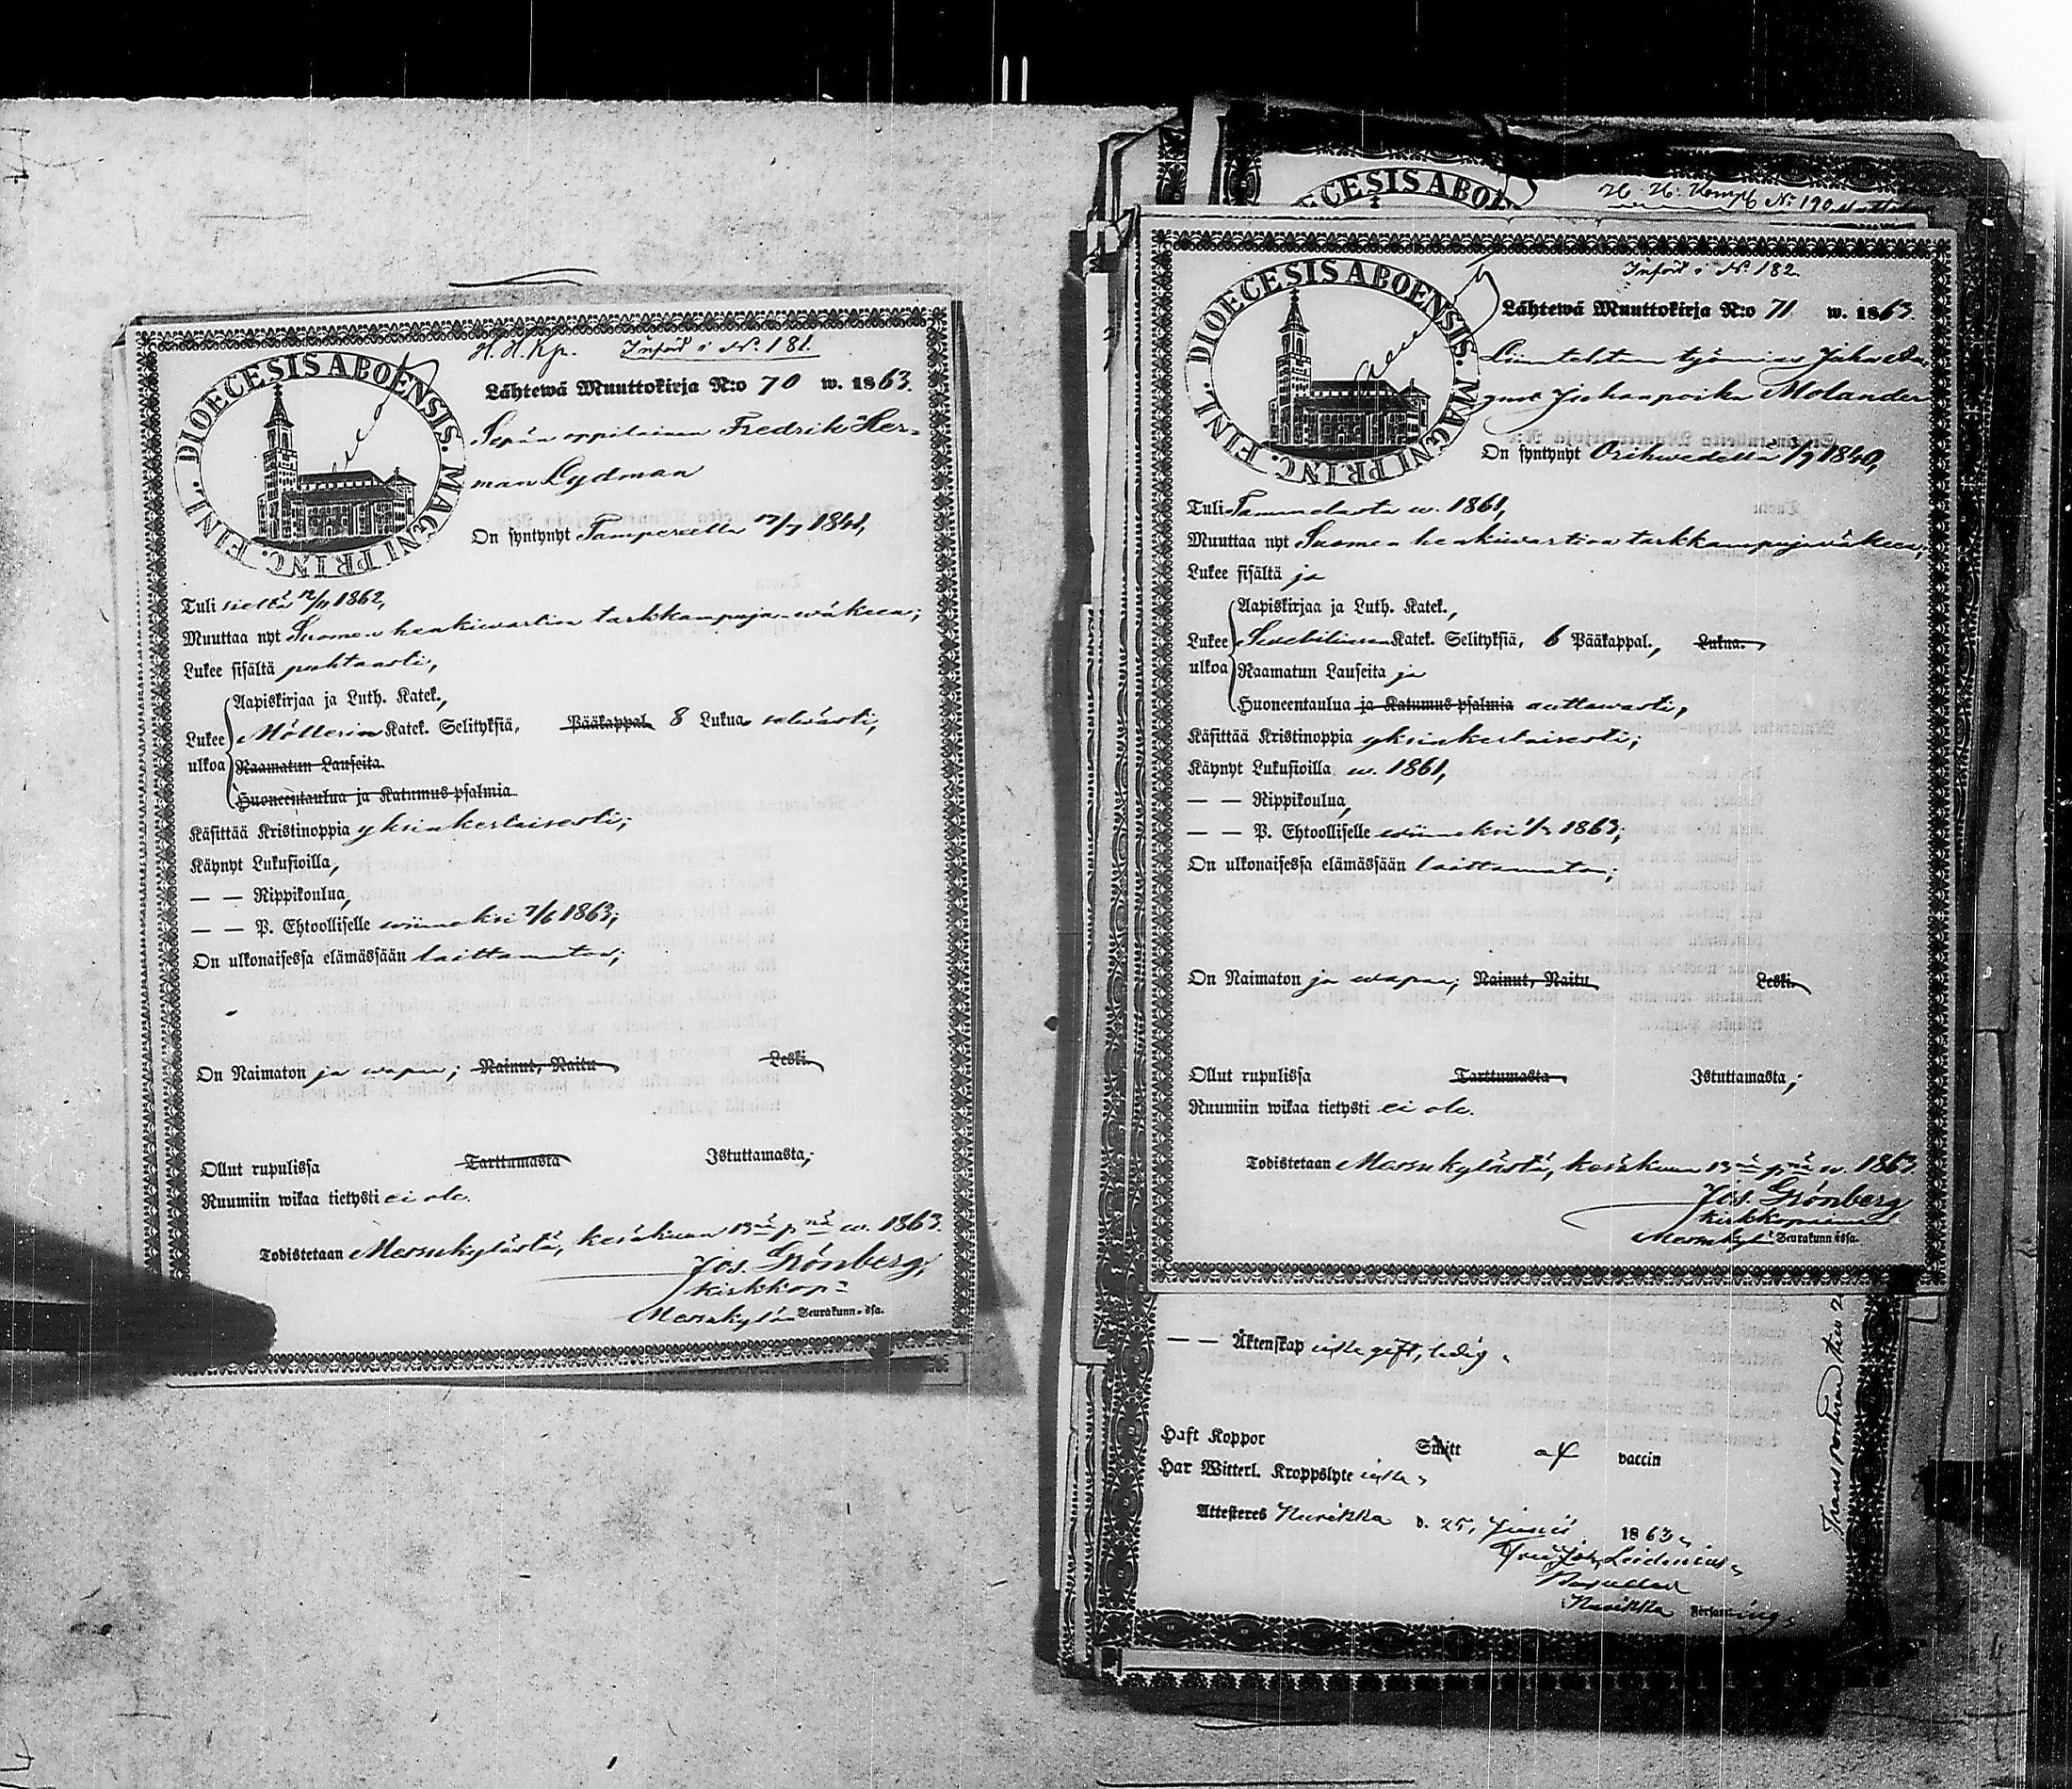 H. H. Kp. Införd i No. 181.
DIOECESIS ABOENSIS. MAGNI PRINC. FINL.
Lähtewä Muuttokirja N:o 70 w. 1863.
Sepän oppilainen Fredrik Her-
man Lydman
On syntynyt Tampereella 1841,
Tuli sieltä 1862,
Muuttaa nyt Suomen henkiwartia tarkkampuja-wäkeen;
Lukee sisältä puhtaasti,
Aapiskirjaa ja Luth. Katek.,
Lukee Möllerin Katek. Selityksiä, Pääkappal. 8 Lukua selwästi,
ulkoa Raamatun Lauseita
Huoneentaulua ja Katumus-psalmia
Käsittää Kristinoppia yksinkertaisesti;
Käynyt Lukusioilla,
— — Rippikoulua,
— — P. Ehtoolliselle wiimeksi 7/6 1863;
On ulkonaisessa elämässään laittamaton;
On Naimaton ja wapaa; Nainut, Naitu Leski.
Ollut rupulissa Tarttumasta Istuttamasta,
Ruumiin wikaa tietysti ei ole.
Todistetaan Messukylästä, kesäkuun 13nä pnä w. 1863.
Jos. Grönberg,
kirkkop.
Messukylän Seurakunn-ssa.
H. H. Komp. No 190
DIOECESIS ABOENSIS
Införd i No. 182.
DIOECESIS ABOENSIS. MAGNI PRINC. FINL.
Lähtewä Muuttokirja N:o 71 w. 1863.
Liuntehtan työmies Johan Au-
gust Juhanpoika Molander
On syntynyt Orihwedellä 1840,
Tuli Tammelasta w. 1861,
Muuttaa nyt Suomen henkiwartian tarkkampujawäkeen;
Lukee sisältä ja
Aapiskirjaa ja Luth. Katek.,
Lukee Swebiliusen Katek. Selityksiä, 6 Pääkappal., Lukua.
ulkoa Raamatun Lauseita ja
Huoneentaulua ja Katumus-psalmia auttawasti,
Käsittää Kristinoppia yksinkertaisesti;
Käynyt Lukusioilla w. 1861,
— — Rippikoulua,
— — P. Ehtoolliselle wiimeksi 1863;
On ulkonaisessa elämässään laittamaton;
On Naimaton ja wapaa; Nainut, Naitu Leski.
Ollut rupulissa Tarttumasta Istuttamasta,
Ruumiin wikaa tietysti ei ole.
Todistetaan Messukylästä, kesäkuun 13nä pnä w. 1863.
Jos. Grönberg
kirkkoherra
Messukylän Seurakunn-ssa.
— — Äktenskap icke gift, ledig,
Haft Koppor Smitt af vaccin
Har Witterl. Kroppslyte icke,
Attesteres Kurikka d. 25, Junii 1863,
Leidenius
Kurikka Församling,